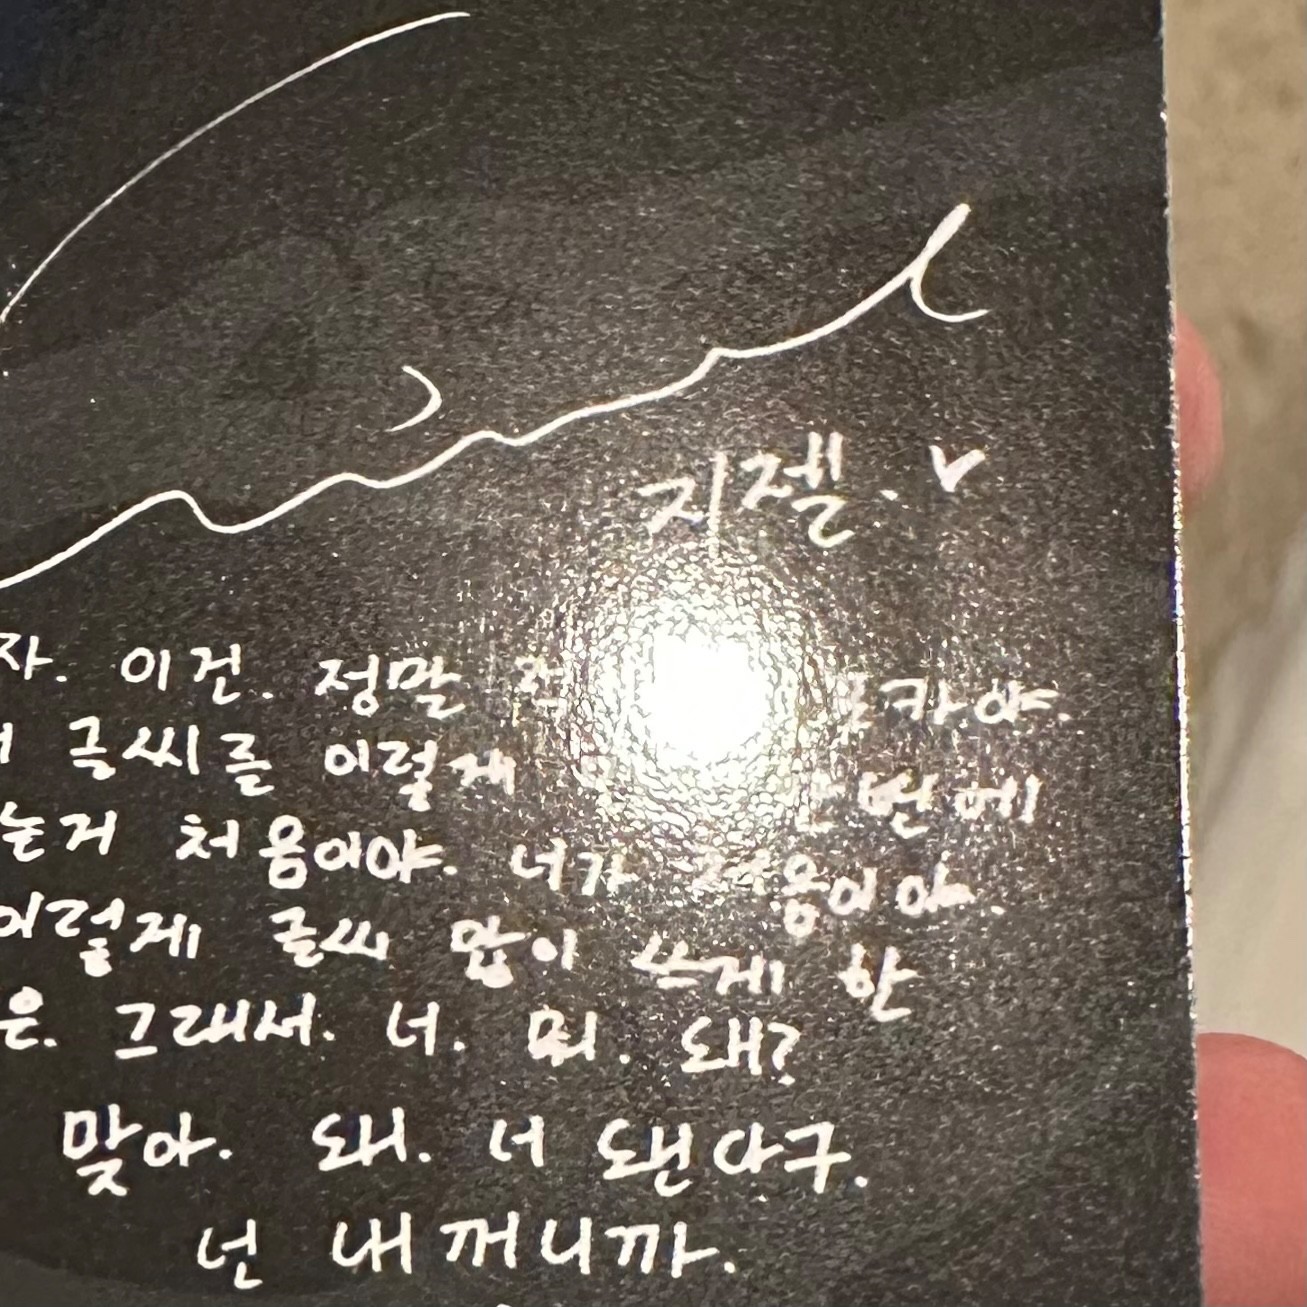 지젤. ♥
자. 이건. 정말 포카야.
글씨를 이렇게 한번에
는거 처음이야. 너가 처음이야.
이렇게 글씨 많이 쓰게 한
은. 그래서. 너. 뭐. 돼?
맞아. 돼. 너 됀다구.
넌 내꺼니까.